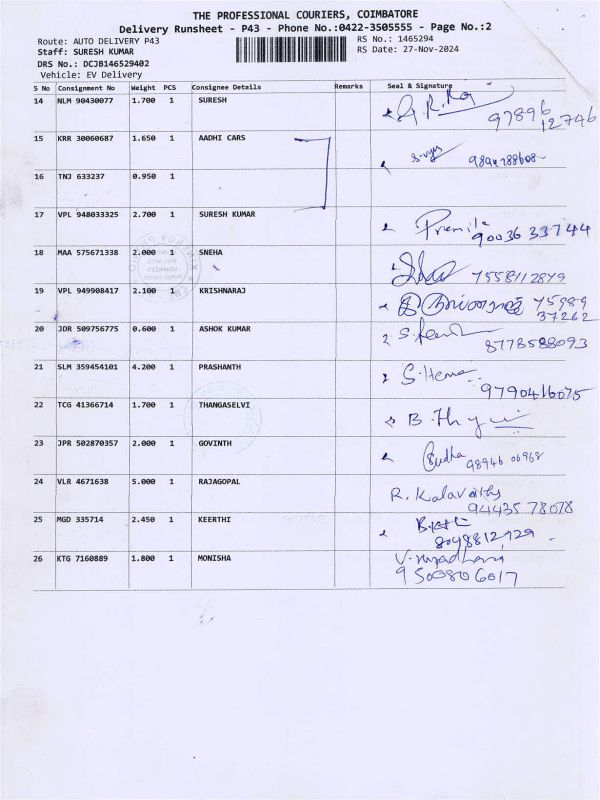 THE PROFESSIONAL COURIERS, COIMBATORE
Delivery Runsheet - P43 - Phone No.:0422-3505555 - Page No.:2
Route: AUTO DELIVERY P43
RS No.: 1465294
Staff: SURESH KUMAR
RS Date: 27-Nov-2024
DRS No.: DCJB146529402
Vehicle: EV Delivery
S No Consignment No Weight PCS Consignee Details Remarks Seal & Signature
14 NLM 90430077 1.700 1 SURESH
97896
12746
15 KRR 30060687 1.650 1 AADHI CARS
16 TNJ 633237 0.950 1
17 VPL 948033325 2.700 1 SURESH KUMAR Premila
90036 33744
18 MAA 575671338 2.000 1 SNEHA
7558112849
19 VPL 949908417 2.100 1 KRISHNARAJ 75989
37262
20 JDR 509756775 0.600 1 ASHOK KUMAR
8778588093
21 SLM 359454101 4.200 1 PRASHANTH S.Hema
9790416075
22 TCG 41366714 1.700 1 THANGASELVI
23 JPR 502870357 2.000 1 GOVINTH Sudha 98946 06968
24 VLR 4671638 5.000 1 RAJAGOPAL R. Kalavathy
94435 78078
25 MGD 335714 2.450 1 KEERTHI
8098812929
26 KTG 7160889 1.800 1 MONISHA
9500806017